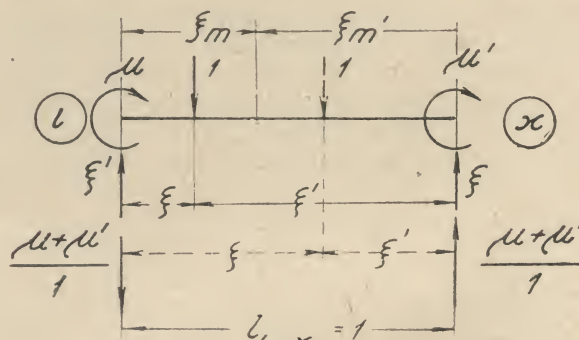 ξm ξm'
μ 1 1 μ'
l x
ξ' ξ ξ' ξ
μ+μ' ξ ξ' μ+μ'
1 1
l = 1